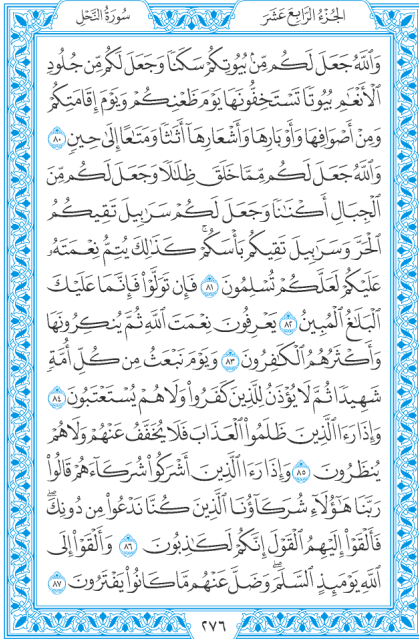 الجزء الرابع عشر
سورة النحل
وَٱللَّهُ جَعَلَ لَكُم مِّنۢ بُيُوتِكُمْ سَكَنًا وَجَعَلَ لَكُم مِّن جُلُودِ
ٱلْأَنْعَٰمِ بُيُوتًا تَسْتَخِفُّونَهَا يَوْمَ ظَعْنِكُمْ وَيَوْمَ إِقَامَتِكُمْ
وَمِنْ أَصْوَافِهَا وَأَوْبَارِهَا وَأَشْعَارِهَآ أَثَٰثًا وَمَتَٰعًا إِلَىٰ حِينٍ ٨٠
وَٱللَّهُ جَعَلَ لَكُم مِّمَّا خَلَقَ ظِلَٰلًا وَجَعَلَ لَكُم مِّنَ
ٱلْجِبَالِ أَكْنَٰنًا وَجَعَلَ لَكُمْ سَرَٰبِيلَ تَقِيكُمُ
ٱلْحَرَّ وَسَرَٰبِيلَ تَقِيكُم بَأْسَكُمْ ۚ كَذَٰلِكَ يُتِمُّ نِعْمَتَهُۥ
عَلَيْكُمْ لَعَلَّكُمْ تُسْلِمُونَ ٨١ فَإِن تَوَلَّوْا۟ فَإِنَّمَا عَلَيْكَ
ٱلْبَلَٰغُ ٱلْمُبِينُ ٨٢ يَعْرِفُونَ نِعْمَتَ ٱللَّهِ ثُمَّ يُنكِرُونَهَا
وَأَكْثَرُهُمُ ٱلْكَٰفِرُونَ ٨٣ وَيَوْمَ نَبْعَثُ مِن كُلِّ أُمَّةٍ
شَهِيدًا ثُمَّ لَا يُؤْذَنُ لِلَّذِينَ كَفَرُوا۟ وَلَا هُمْ يُسْتَعْتَبُونَ ٨٤
وَإِذَا رَءَا ٱلَّذِينَ ظَلَمُوا۟ ٱلْعَذَابَ فَلَا يُخَفَّفُ عَنْهُمْ وَلَا هُمْ
يُنظَرُونَ ٨٥ وَإِذَا رَءَا ٱلَّذِينَ أَشْرَكُوا۟ شُرَكَآءَهُمْ قَالُوا۟
رَبَّنَا هَٰٓؤُلَآءِ شُرَكَآؤُنَا ٱلَّذِينَ كُنَّا نَدْعُوا۟ مِن دُونِكَ ۖ
فَأَلْقَوْا۟ إِلَيْهِمُ ٱلْقَوْلَ إِنَّكُمْ لَكَٰذِبُونَ ٨٦ وَأَلْقَوْا۟ إِلَى
ٱللَّهِ يَوْمَئِذٍ ٱلسَّلَمَ ۖ وَضَلَّ عَنْهُم مَّا كَانُوا۟ يَفْتَرُونَ ٨٧
٢٧٦